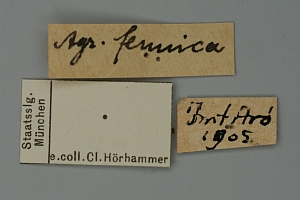 Agr. fennica
Staatsslg.
München
e.coll.Cl.Hörhammer
1905.